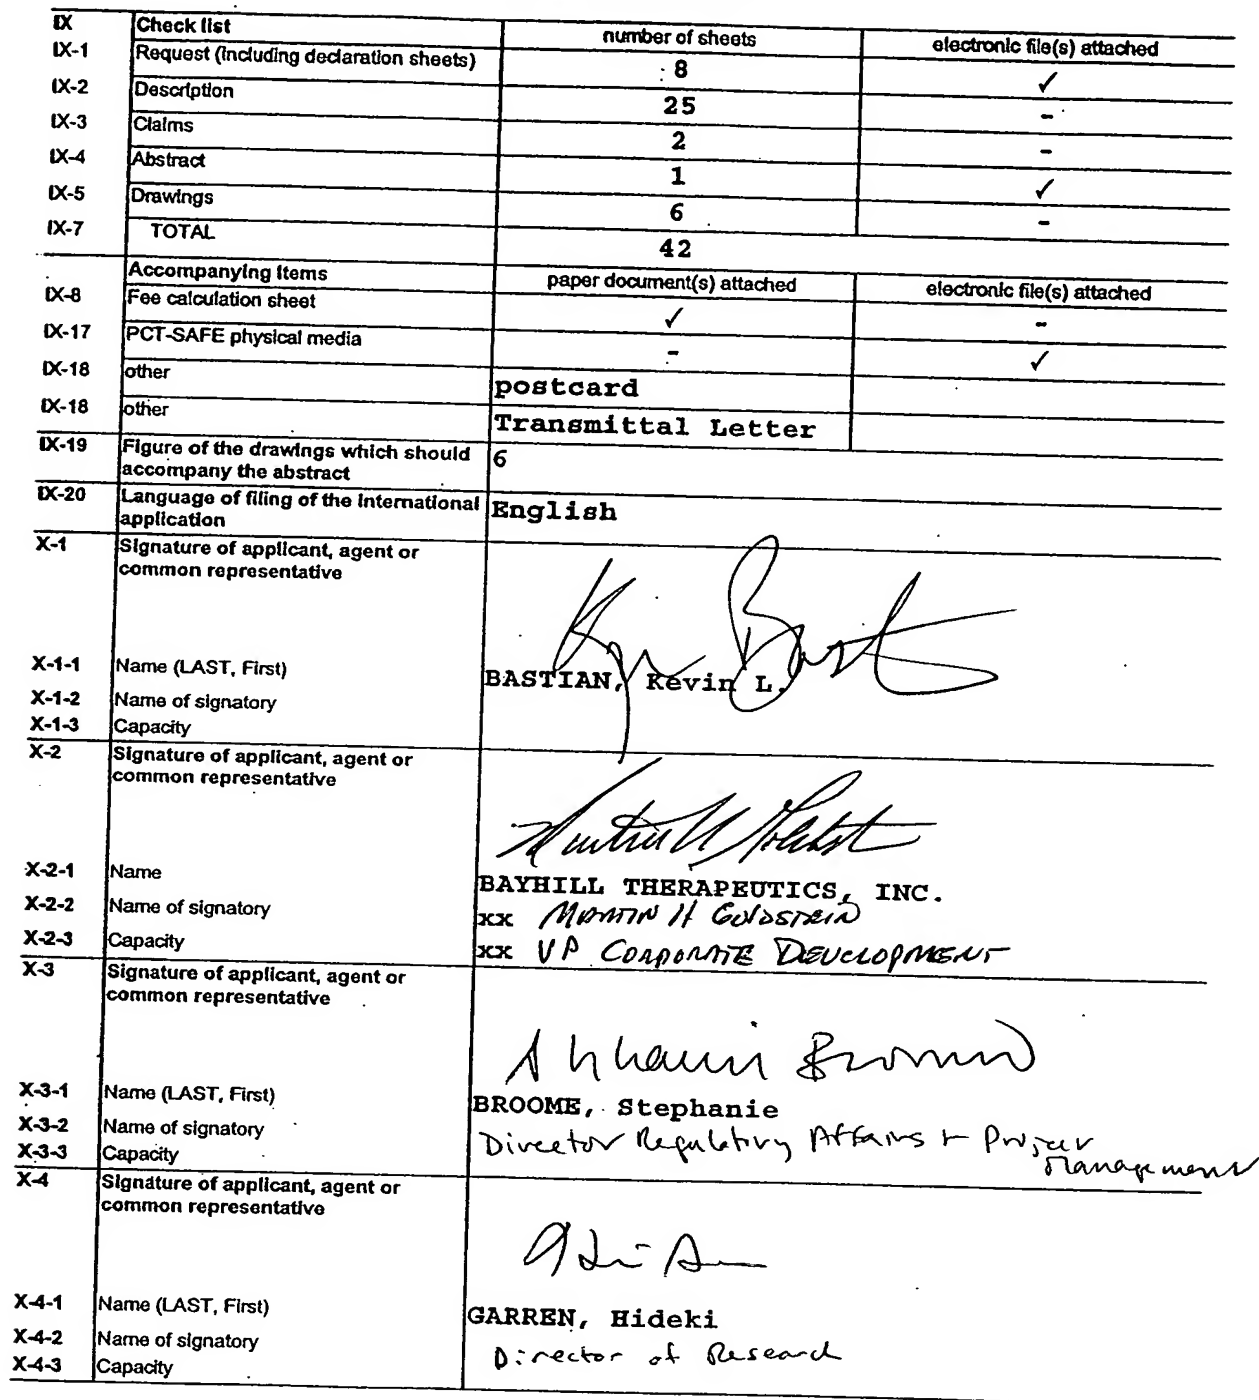 IX Check list number of sheets electronic file(s) attached
IX-1 Request (including declaration sheets) 8 ✓
IX-2 Description 25 -
IX-3 Claims 2 -
IX-4 Abstract 1 ✓
IX-5 Drawings 6 -
IX-7 TOTAL 42
Accompanying items paper document(s) attached electronic file(s) attached
IX-8 Fee calculation sheet ✓ -
IX-17 PCT-SAFE physical media - ✓
IX-18 other postcard
IX-18 other Transmittal Letter
IX-19 Figure of the drawings which should 6
accompany the abstract
IX-20 Language of filing of the international English
application
X-1 Signature of applicant, agent or
common representative
X-1-1 Name (LAST, First) BASTIAN, Kevin L.
X-1-2 Name of signatory
X-1-3 Capacity
X-2 Signature of applicant, agent or
common representative
X-2-1 Name BAYHILL THERAPEUTICS, INC.
X-2-2 Name of signatory xx MARTIN H GOLDSTEIN
X-2-3 Capacity xx VP CORPORATE DEVELOPMENT
X-3 Signature of applicant, agent or
common representative
X-3-1 Name (LAST, First) BROOME, Stephanie
X-3-2 Name of signatory Director Regulatory Affairs + Project
Management
X-3-3 Capacity
X-4 Signature of applicant, agent or
common representative
X-4-1 Name (LAST, First) GARREN, Hideki
X-4-2 Name of signatory Director of Research
X-4-3 Capacity